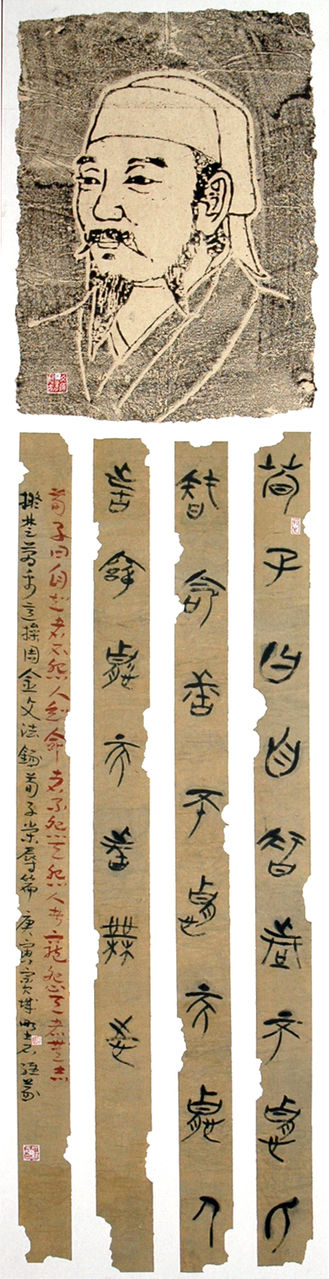 荀子曰自智者不怨人
智命者不怨天怨人
者窮怨天者無志
荀子曰自知者不怨人知命者不怨天怨人者窮怨天者無志
楚簡 意採周金文法錄荀子榮辱篇 庚寅